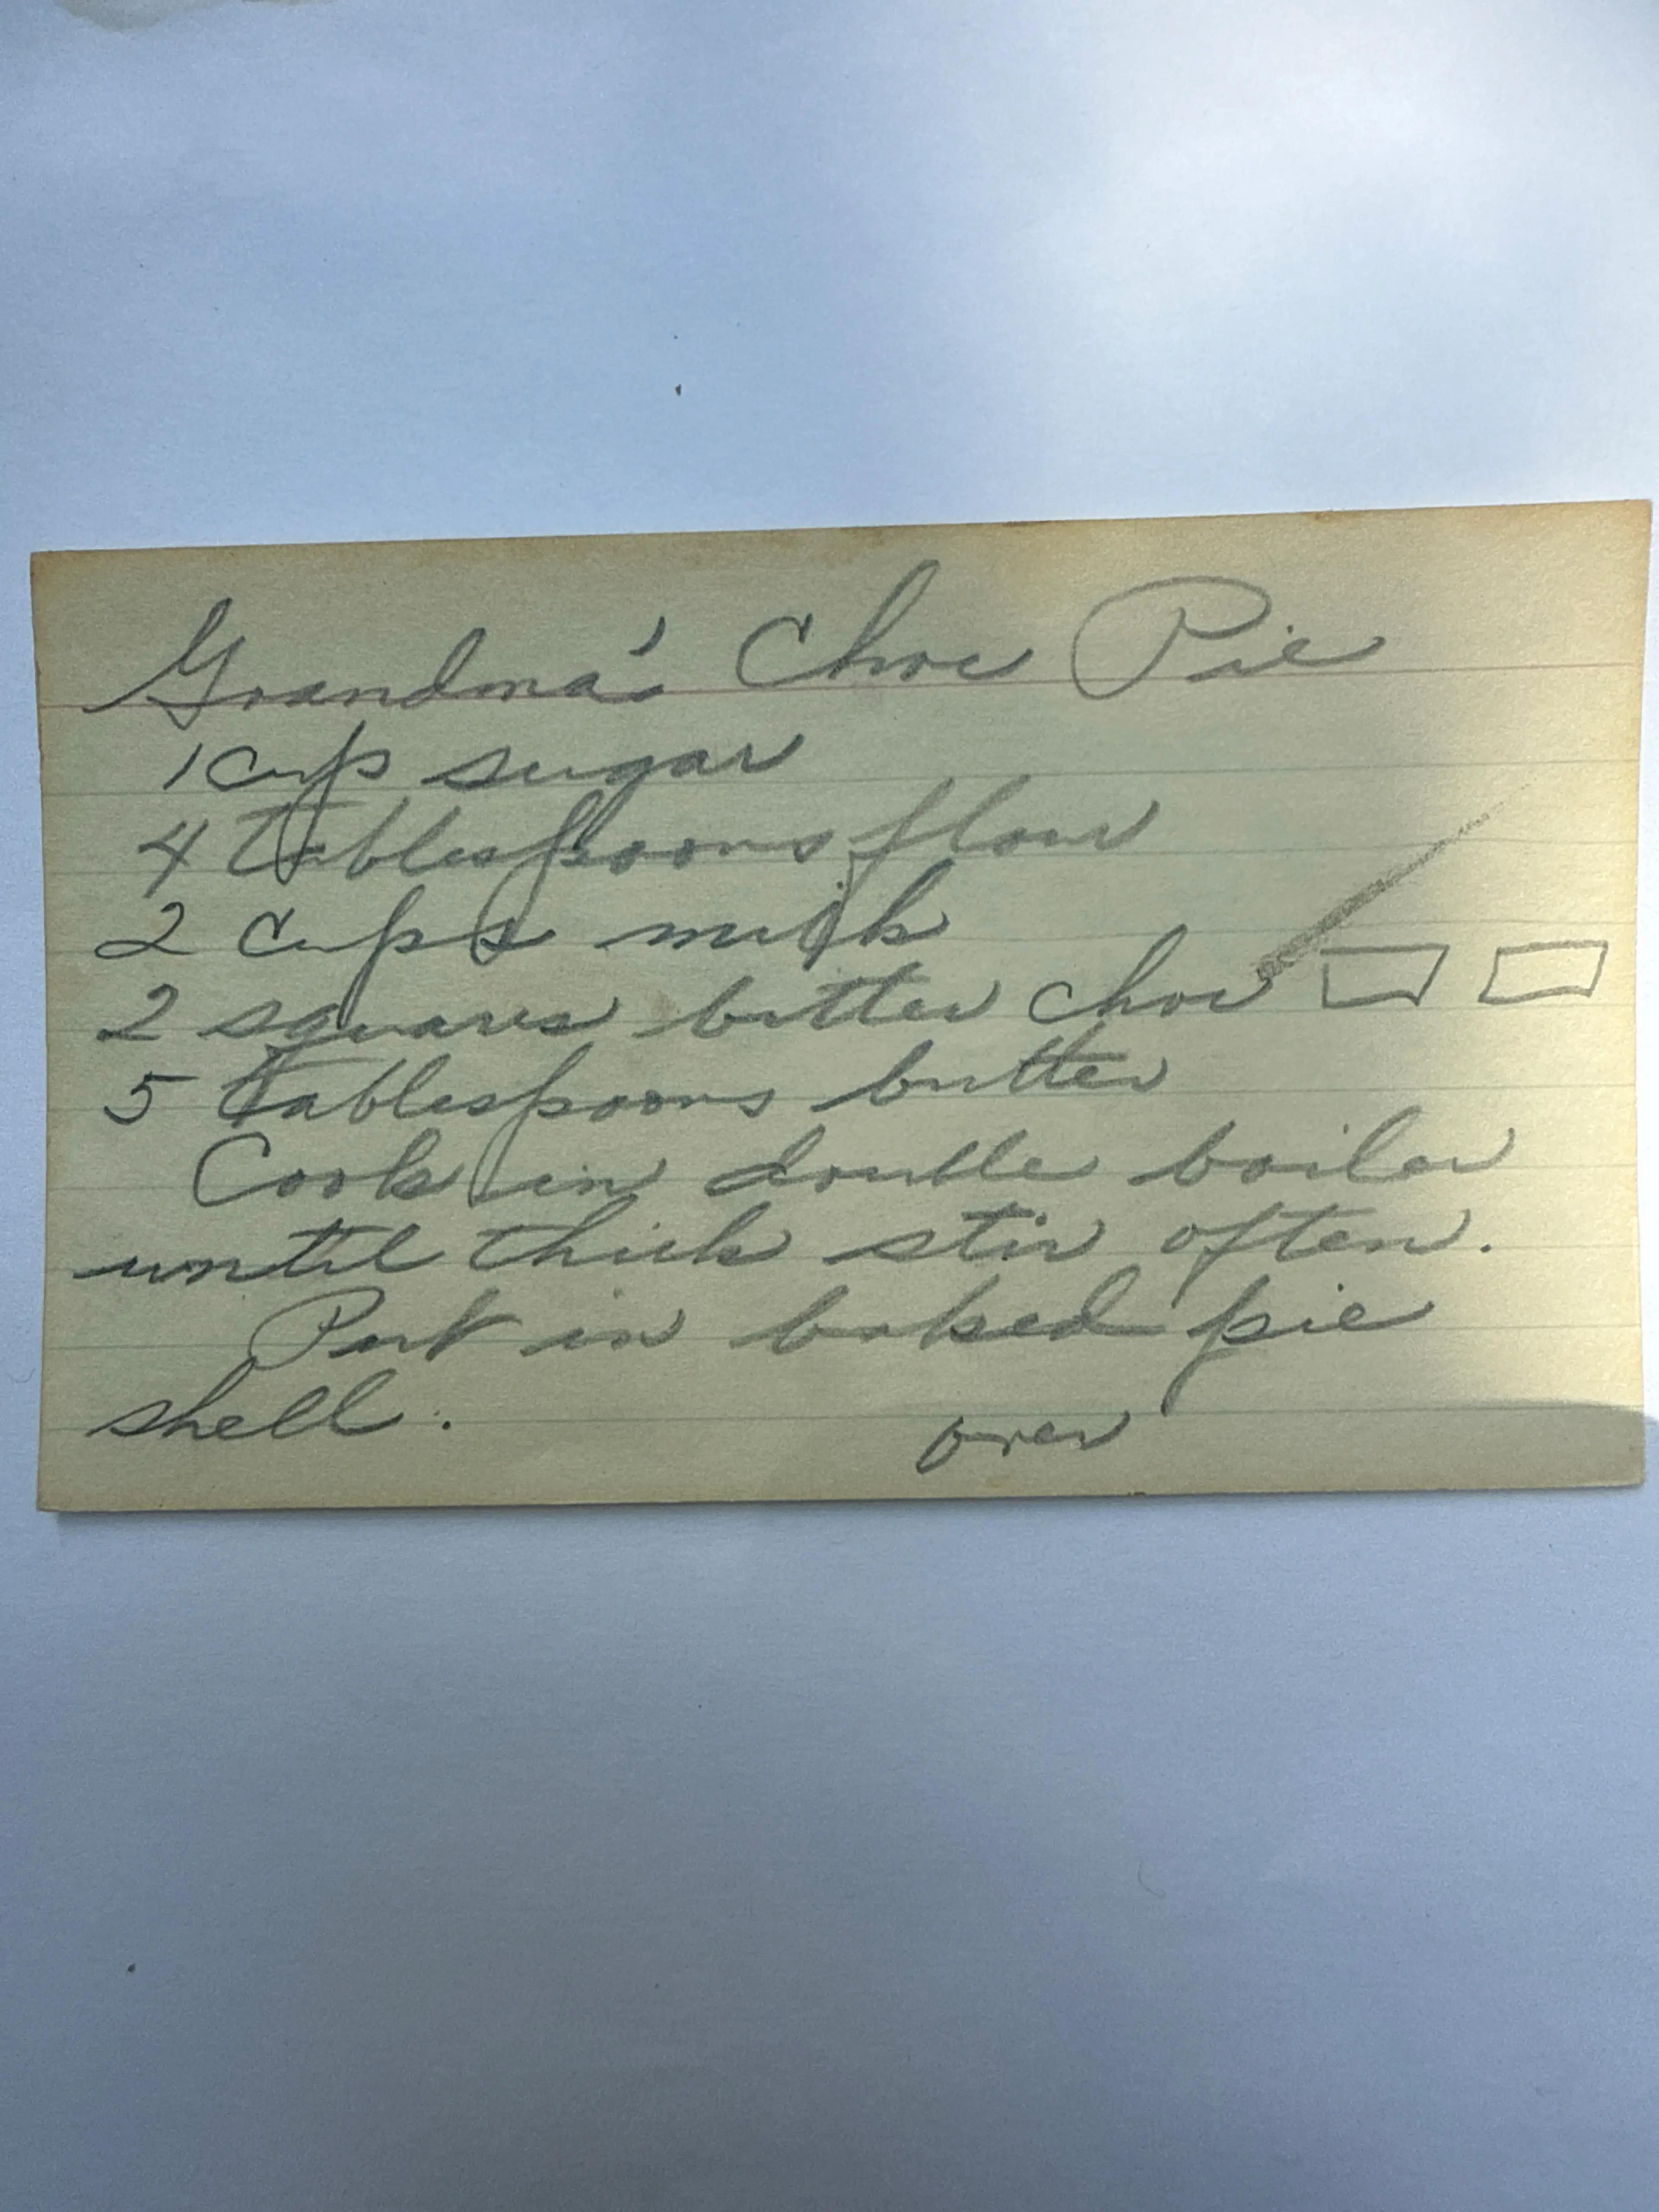 Grandma's Choc Pie
1 cup sugar
4 tablespoons flour
2 cups milk
2 squares bitter choc
5 tablespoons butter
Cook in double boiler
until thick stir often.
Put in baked pie
shell.
over